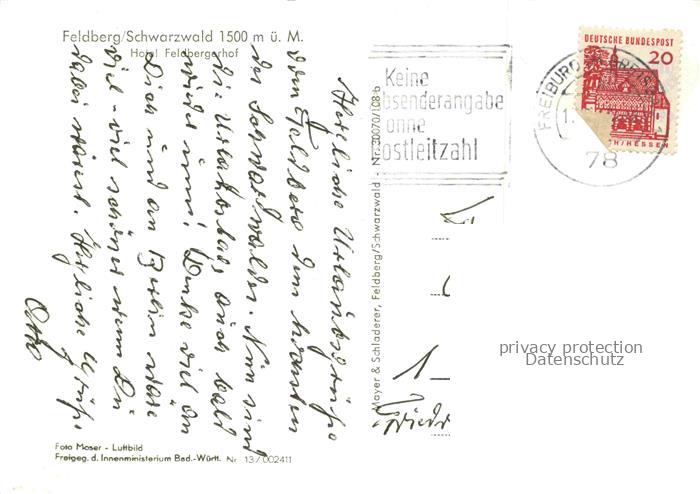 Feldberg/Schwarzwald 1500 m ü. M.
Hotel Feldbergerhof
Herzliche Urlaubsgrüße
vom Feldberg dem höchsten
des Schwarzwaldes. Nun sind
die Urlaubstage auch bald
wieder um! Denke viel an
Dich und an Berlin wäre
viel - viel schöner wenn Du
dabei wärest. Herzliche Grüße
Otto
Foto Moser - Luftbild
Freigeg. d. Innenministerium Bad.-Württ. Nr. 13/002411
Mayer & Schladerer, Feldberg/Schwarzwald Nr. 30070/108-b
Keine
Absenderangabe
ohne
Postleitzahl
FREIBURG
78
DEUTSCHE BUNDESPOST
20
CH/HESSEN
1
Friedr
privacy protection
Datenschutz